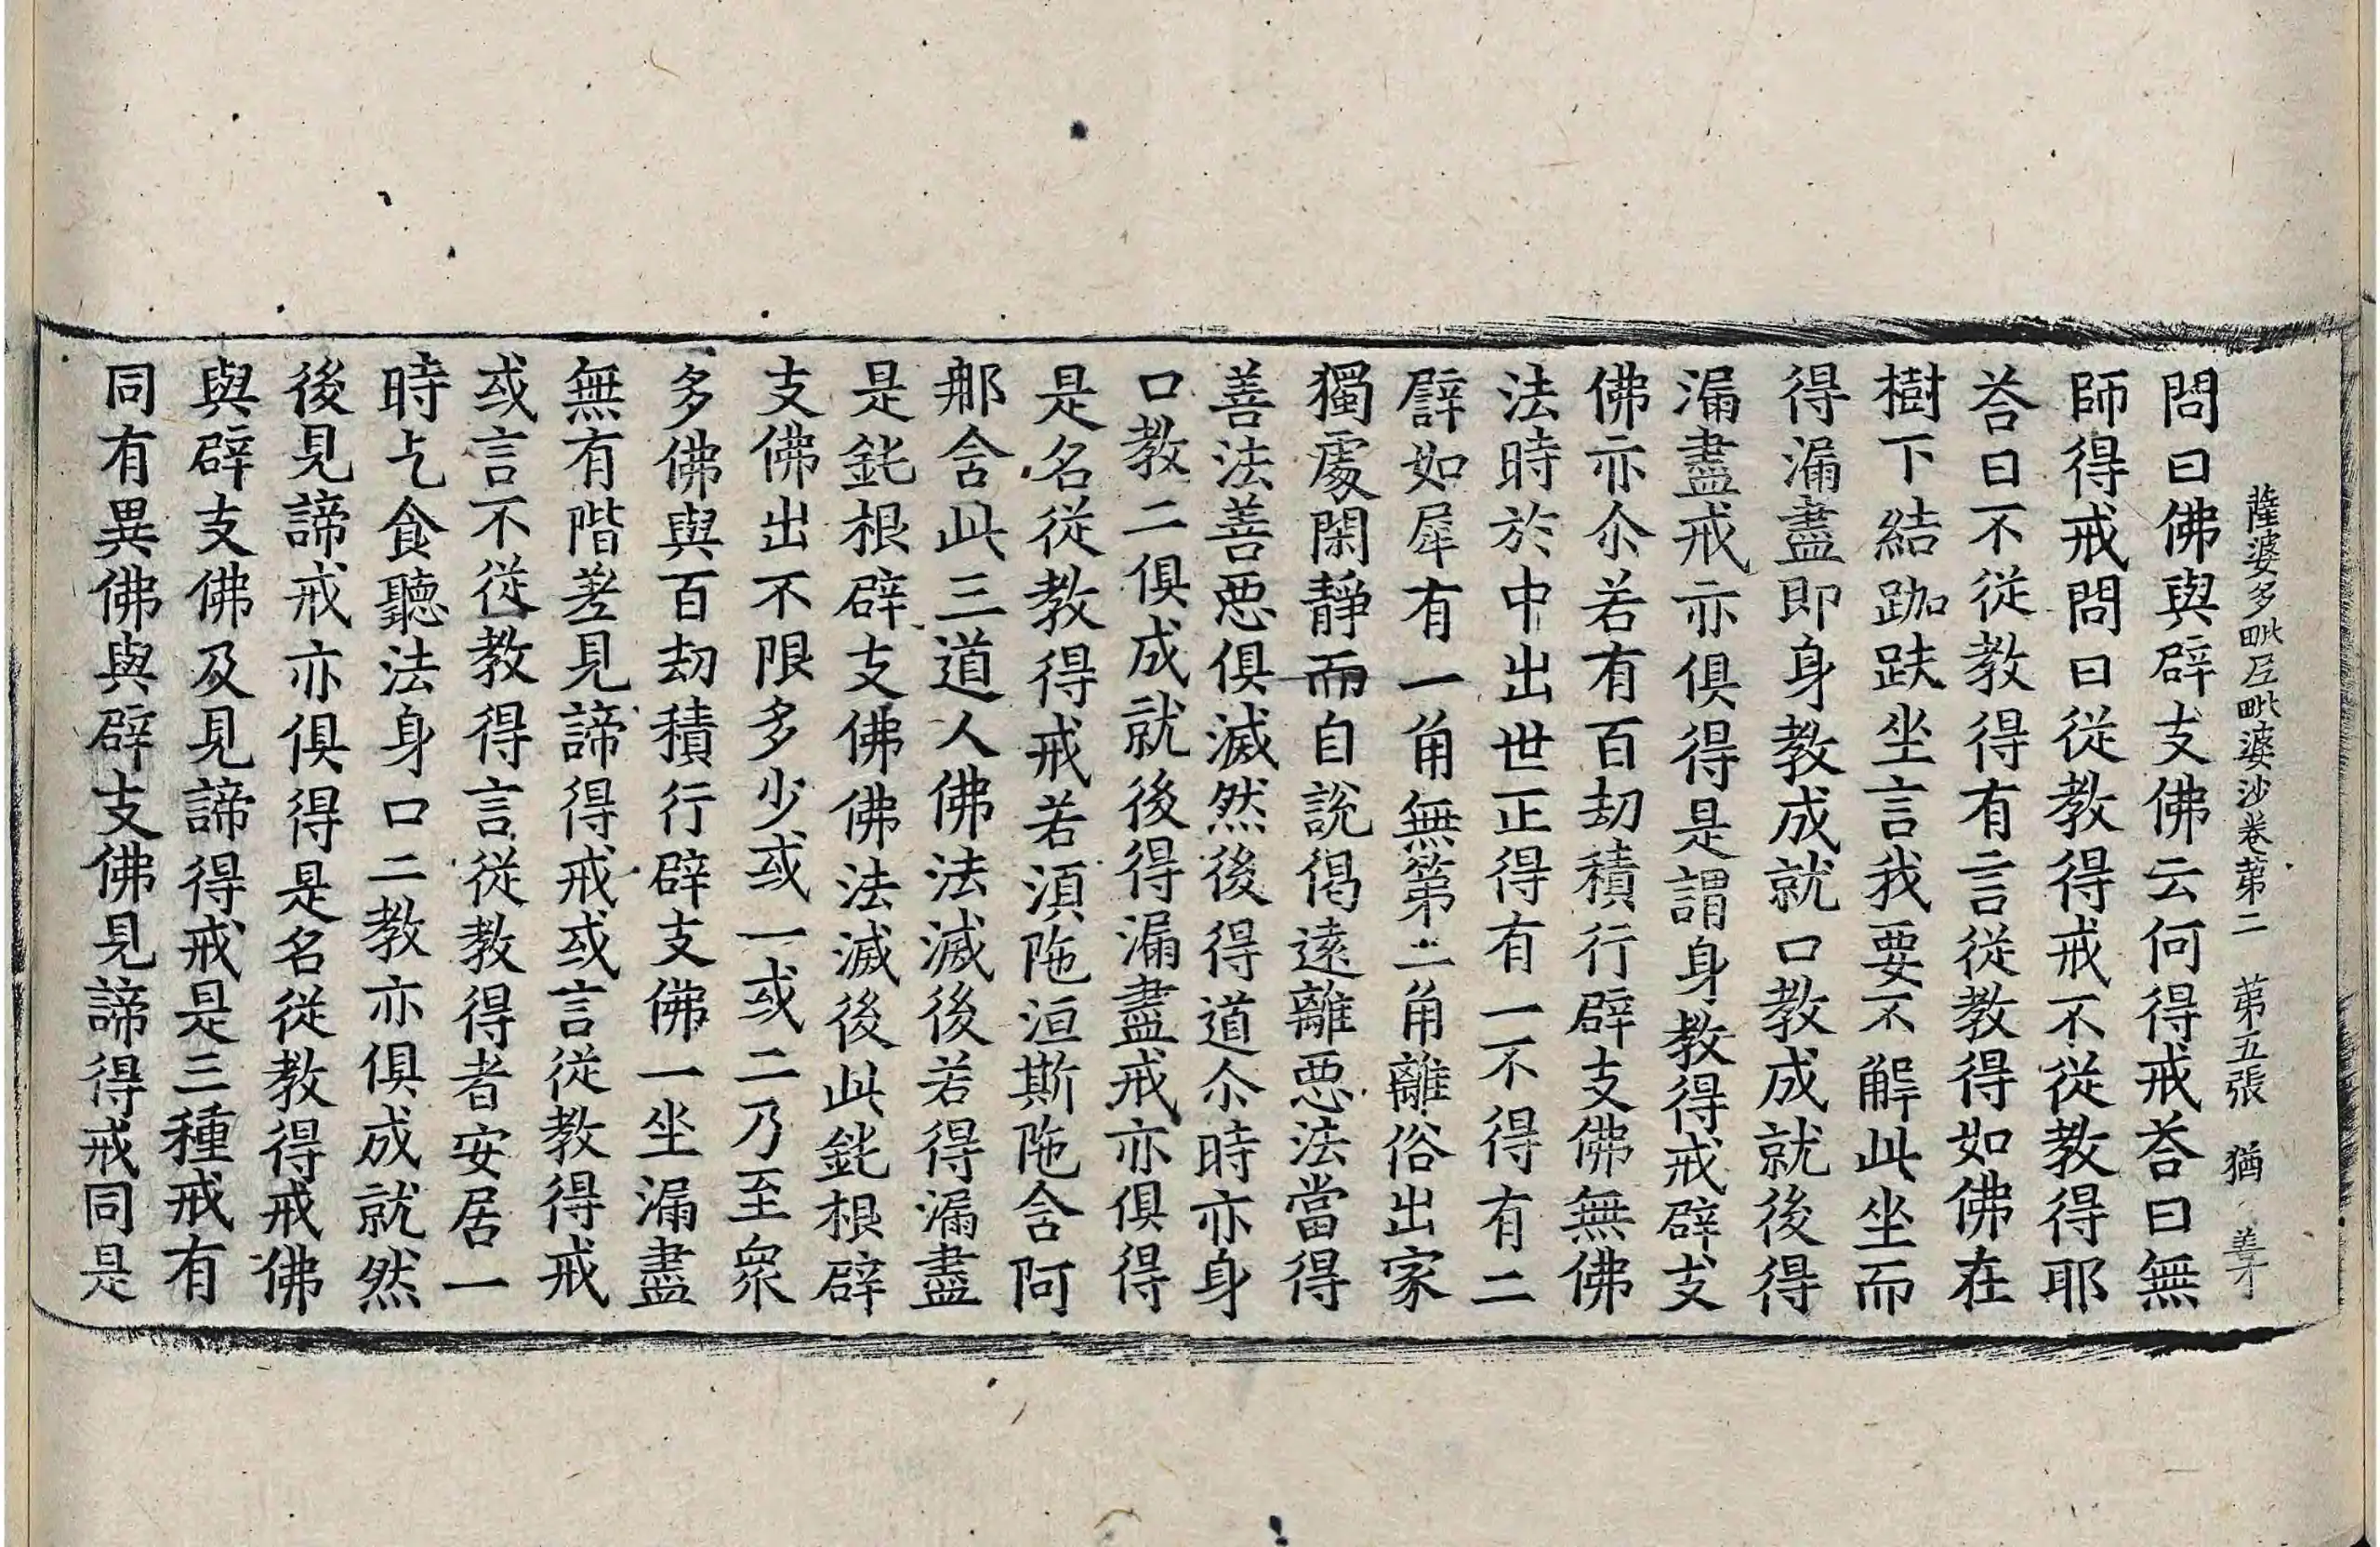 薩婆多毗尼毗婆沙卷第二 第五張 猶 善才
問曰佛與辟支佛云何得戒荅曰無
師得戒問曰從教得戒不從教得耶
荅曰不從教得有言從教得如佛在
樹下結跏趺坐言我要不解此坐而
得漏盡即身教成就口教成就後得
漏盡戒亦俱得是謂身教得戒辟支
佛亦尒若有百劫積行辟支佛無佛
法時於中出世正得有一不得有二
譬如犀有一角無第二角離俗出家
獨處閑靜而自說偈遠離惡法當得
善法善惡俱滅然後得道尒時亦身
口教二俱成就後得漏盡戒亦俱得
是名從教得戒若湏陁洹斯陁含阿
那含此三道人佛法滅後若得漏盡
是鈍根辟支佛佛法滅後此鈍根辟
支佛出不限多少或一或二乃至衆
多佛與百劫積行辟支佛一坐漏盡
無有階差見諦得戒或言從教得戒
或言不從教得言從教得者安居一
時乞食聽法身口二教亦俱成就然
後見諦戒亦俱得是名從教得戒佛
與辟支佛及見諦得戒是三種戒有
同有異佛與辟支佛見諦得戒同是